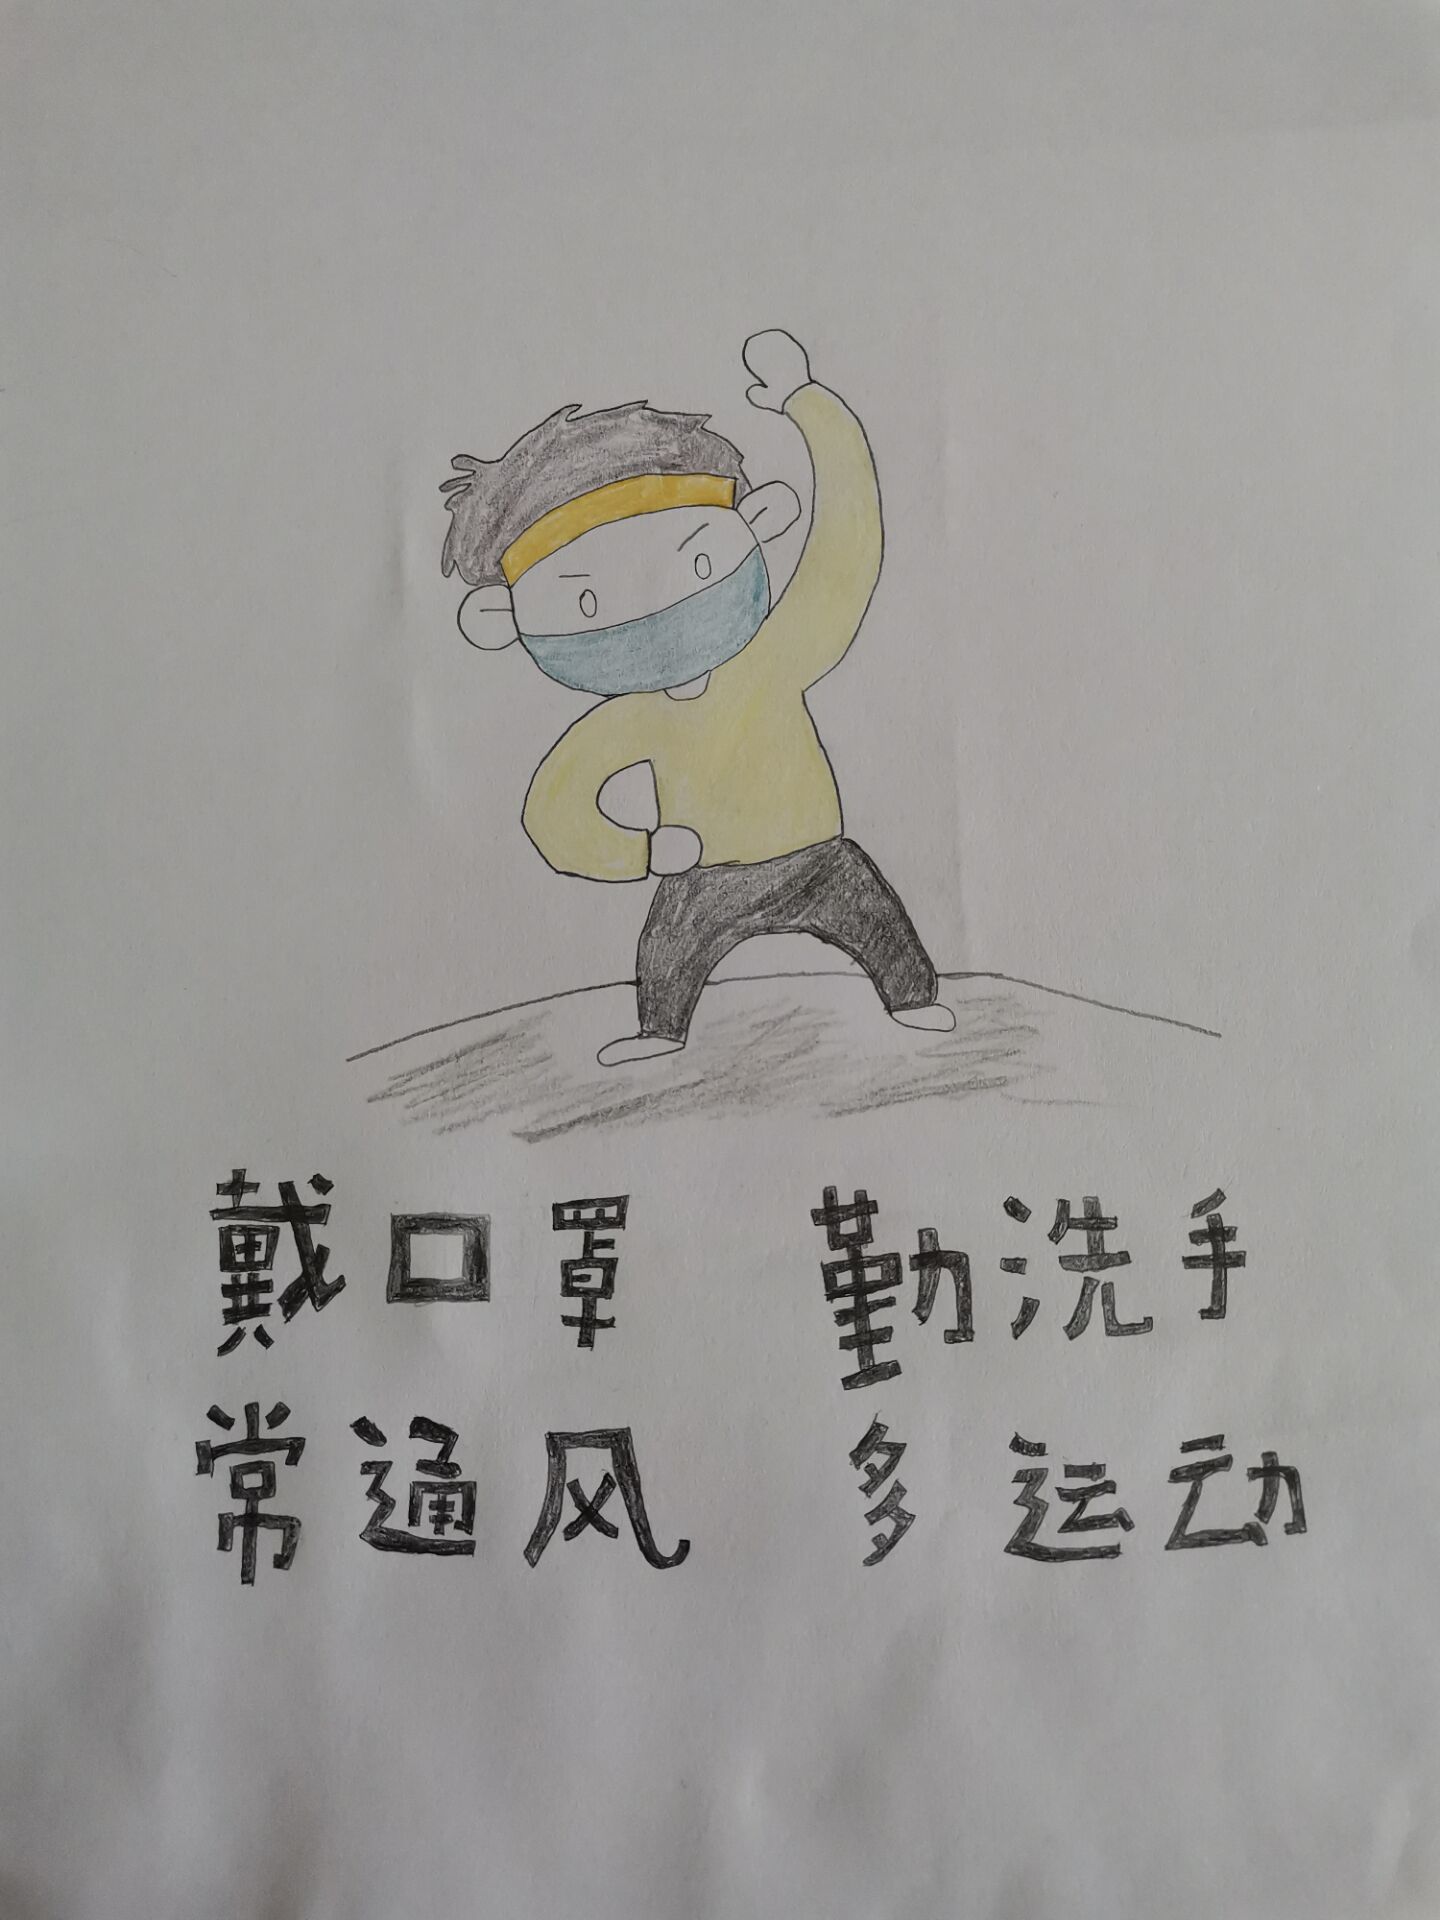 戴口罩 勤洗手
常通风 多运动